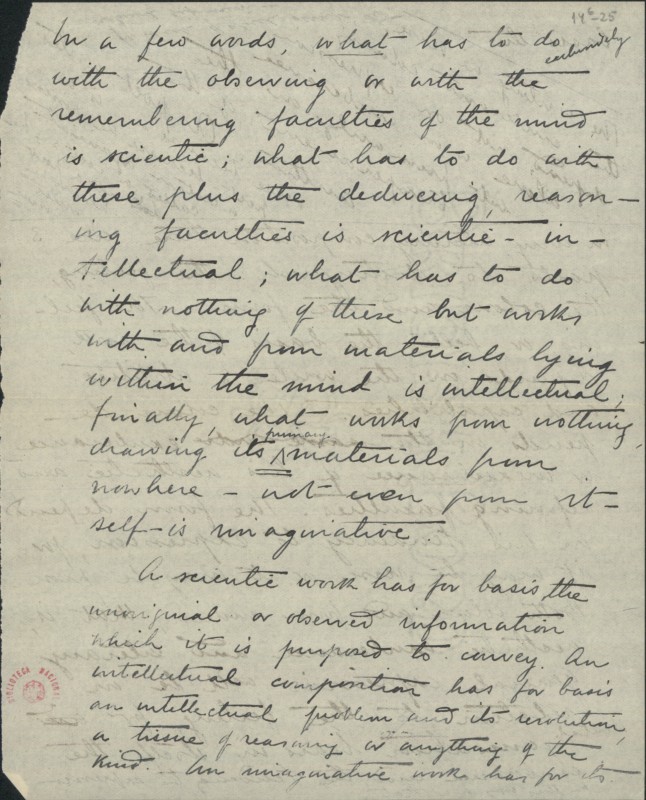 14⁶-25
In a few words, what has to do exclusively
with the observing or with the
remembering faculties of the mind
is scientic; what has to do with
these plus the deducing, reason-
ing faculties is scientic-in-
tellectual; what has to do
with nothing of these but works
with and from materials lying
within the mind is intellectual;
finally, what works from nothing,
drawing its primary materials from
nowhere - not even from it-
self - is imaginative.
A scientic work has for basis the
unoriginal or observed information
which it is purposed to convey. An
intellectual composition has for basis
an intellectual problem and its resolution,
a tissue of reasoning or anything of the
kind. An imaginative work has for its
BIBLIOTECA NACIONAL